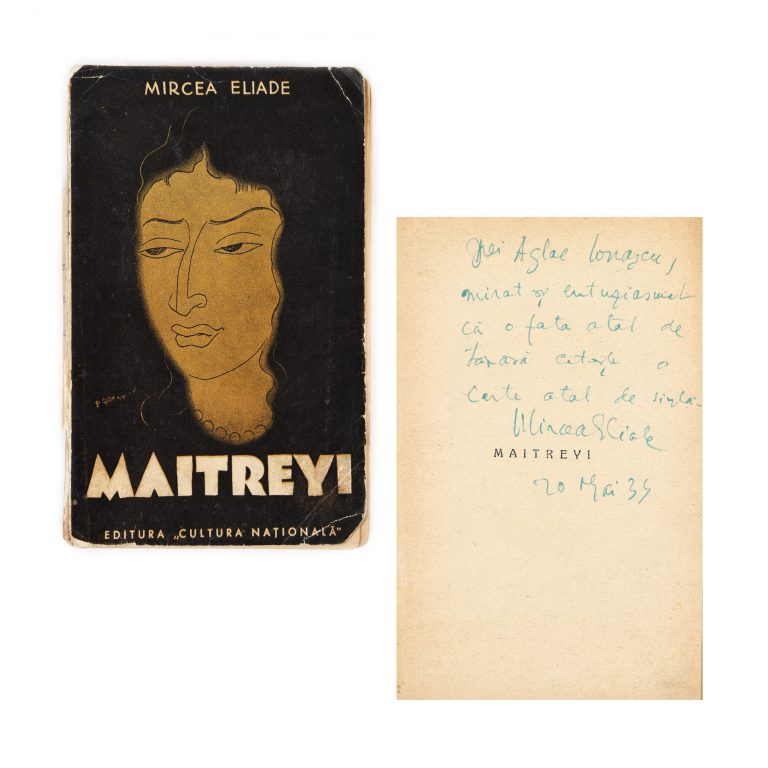 MIRCEA ELIADE
MAITREYI
EDITURA „CULTURA NAȚIONALĂ"
Aglae Ionașcu,
mirat și entuziasmat
că o fată atât de
tânără citește o
carte atât de
Mircea Eliade
MAITREYI
20 Mai 35